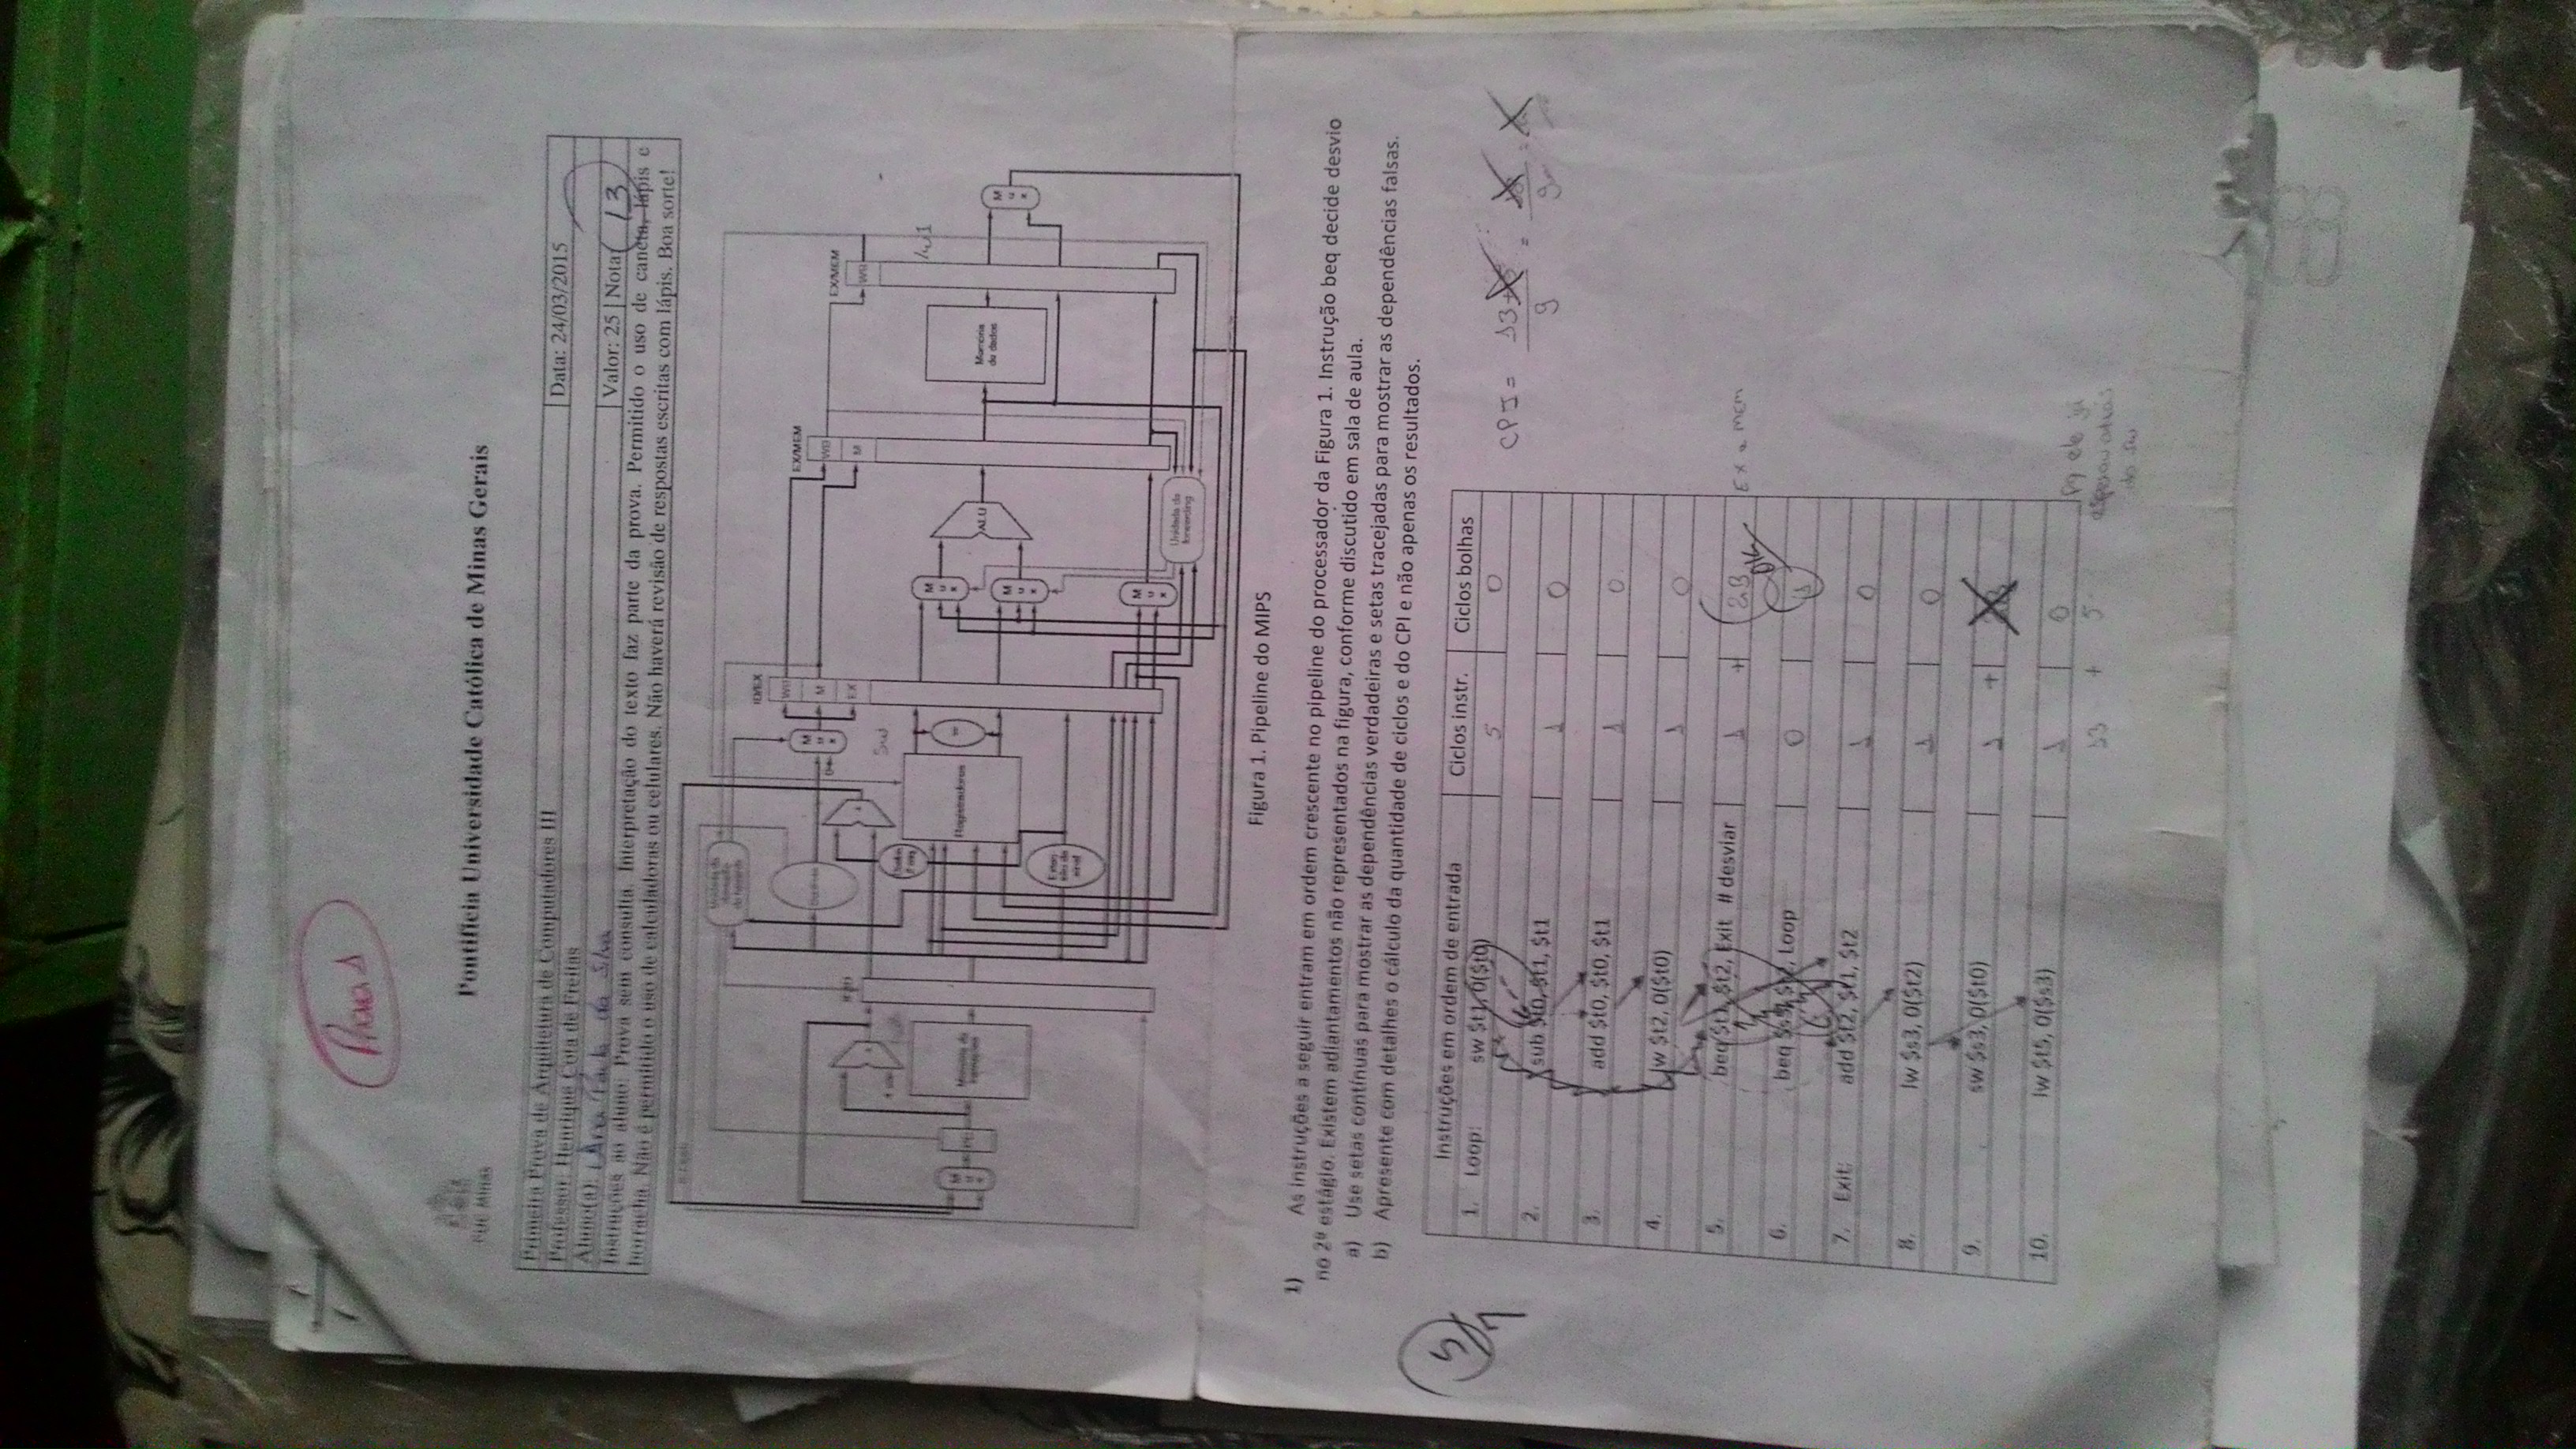 Prova 1
PUC Minas
Pontifícia Universidade Católica de Minas Gerais
Primeira Prova de Arquitetura de Computadores III
Data: 24/03/2015
Professor: Henrique Cota de Freitas
Aluno(a): da Silva
Valor: 25 | Nota 13
Instruções ao aluno: Prova sem consulta. Interpretação do texto faz parte da prova. Permitido o uso de caneta, lápis e
borracha. Não é permitido o uso de calculadoras ou celulares. Não haverá revisão de respostas escritas com lápis. Boa sorte!
Unidade de
ID/EX
WB
M
EX
Mux
EX/MEM
WB
M
EX/MEM
WB
SW
lw1
Mux
Registradores
=
Mux
ALU
Memória
de dados
Mux
Mux
Memória de
Exten-
são de
sinal
Mux
Unidade de
forwarding
Figura 1. Pipeline do MIPS
1) As instruções a seguir entram em ordem crescente no pipeline do processador da Figura 1. Instrução beq decide desvio
no 2º estágio. Existem adiantamentos não representados na figura, conforme discutido em sala de aula.
a) Use setas contínuas para mostrar as dependências verdadeiras e setas tracejadas para mostrar as dependências falsas.
b) Apresente com detalhes o cálculo da quantidade de ciclos e do CPI e não apenas os resultados.
5/7
Instruções em ordem de entrada Ciclos instr. Ciclos bolhas
1. Loop: sw $t1, 0($t0) 5 0
CPI = 13 / 9 = / 9 =
2. sub $t0, $t1, $t1 1 0
3. add $t0, $t0, $t1 1 0
4. lw $t2, 0($t0) 1 0
5. beq $t1, $t2, Exit # desviar 1 + EX e MEM
OK
6. beq $s3, $t2, Loop 0 1
7. Exit: add $t2, $t1, $t2 1 0
8. lw $s3, 0($t2) 1 0
9. sw $s3, 0($t0) 1 +
10. lw $t5, 0($s3) 1 0
13 + 5
pq ele já
do sw